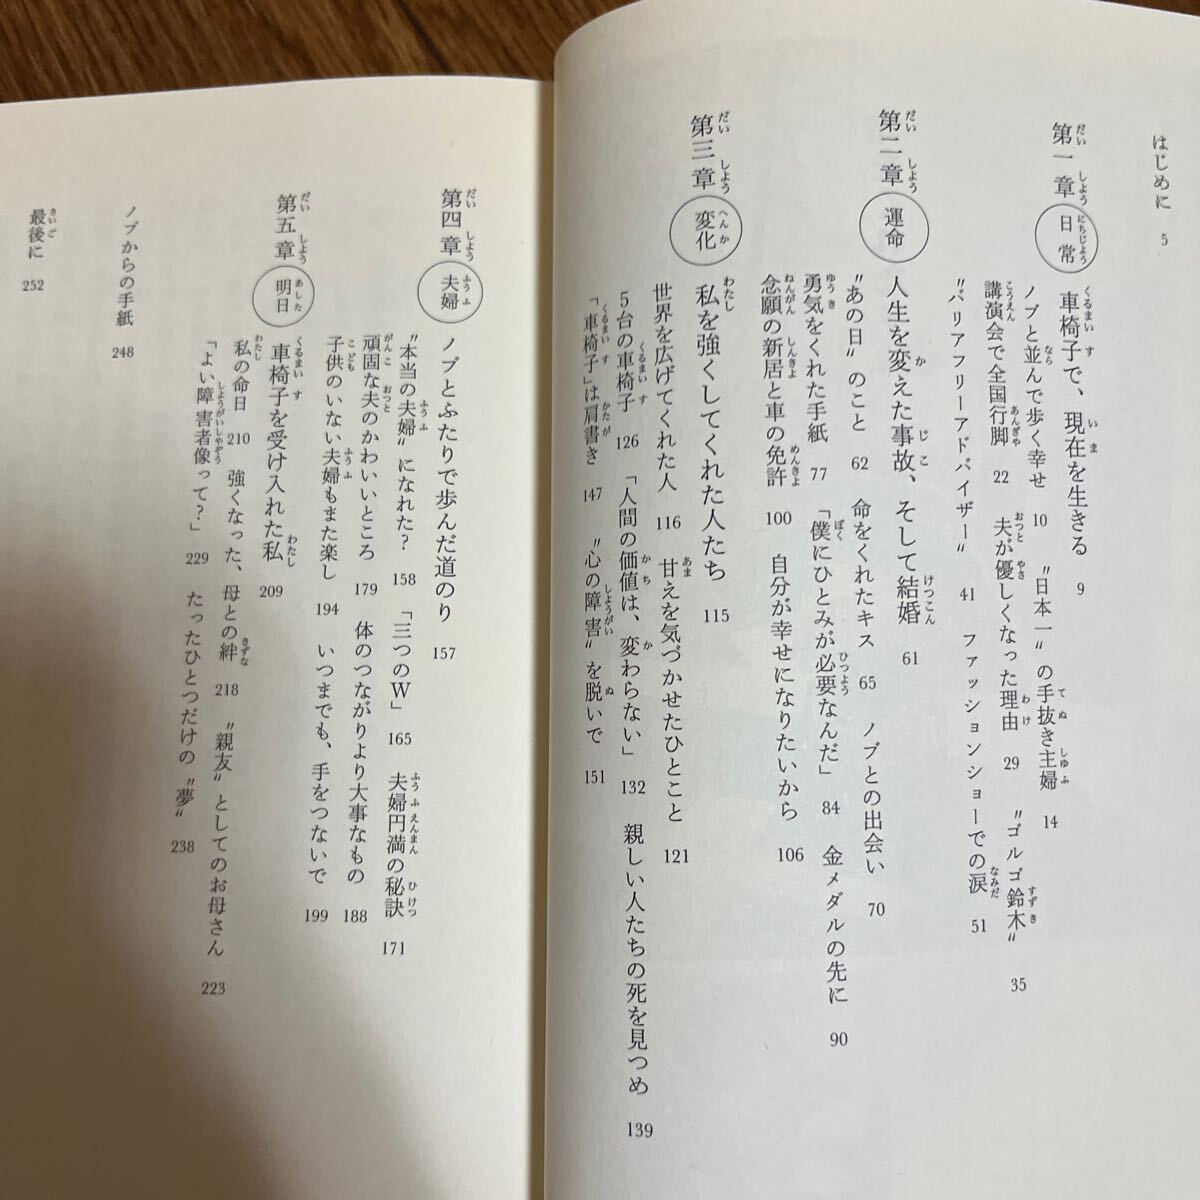 はじめに 5
第一章 日常 車椅子で、現在を生きる 9
ノブと並んで歩く幸せ 10 〝日本一〟の手抜き主婦 14
講演会で全国行脚 22 夫が優しくなった理由 29 〝ゴルゴ鈴木〟 35
〝バリアフリーアドバイザー〟 41 ファッションショーでの涙 51
第二章 運命 人生を変えた事故、そして結婚 61
〝あの日〟のこと 62 命をくれたキス 65 ノブとの出会い 70
勇気をくれた手紙 77 「僕にひとみが必要なんだ」 84 金メダルの先に 90
念願の新居と車の免許 100 自分が幸せになりたいから 106
第三章 変化 私を強くしてくれた人たち 115
世界を広げてくれた人 116 甘えを気づかせたひとこと 121
5台の車椅子 126 「人間の価値は、変わらない」 132 親しい人たちの死を見つめ 139
「車椅子」は肩書き 147 〝心の障害〟を脱いで 151
第四章 夫婦 ノブとふたりで歩んだ道のり 157
〝本当の夫婦〟になれた? 158 「三つのW」 165 夫婦円満の秘訣 171
頑固な夫のかわいいところ 179 体のつながりより大事なもの 188
子供のいない夫婦もまた楽し 194 いつまでも、手をつないで 199
第五章 明日 車椅子を受け入れた私 209
私の命日 210 強くなった、母との絆 218 〝親友〟としてのお母さん 223
「よい障害者像って?」 229 たったひとつだけの〝夢〟 238
ノブからの手紙 248
最後に 252